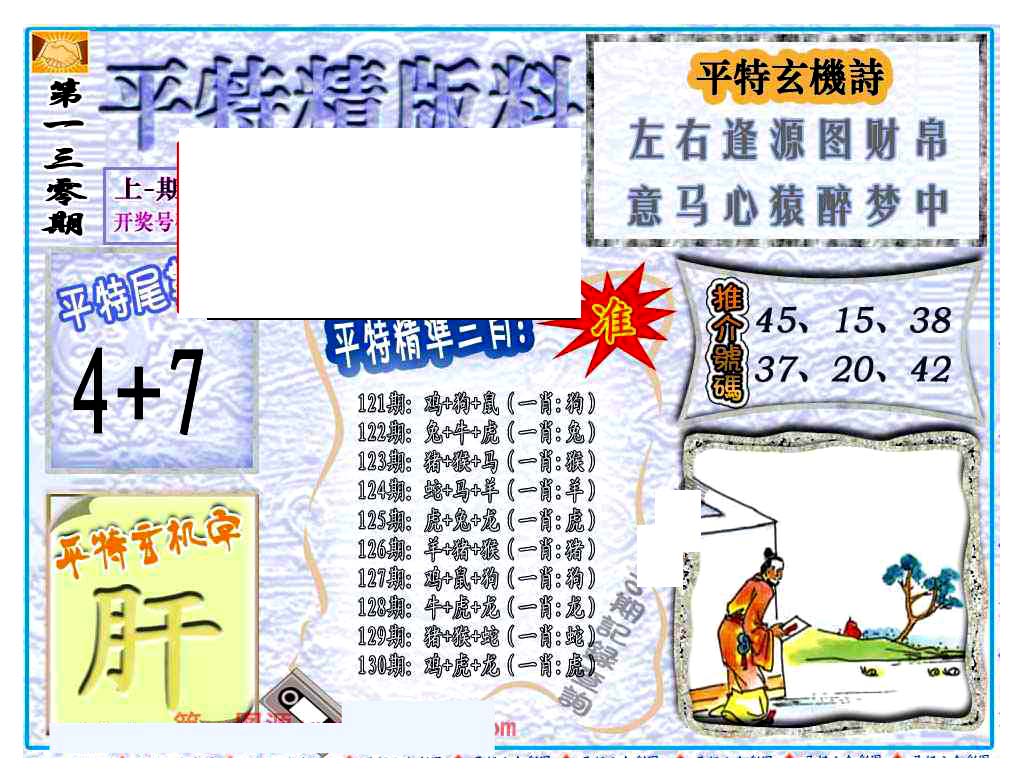 第一三零期
平特精版料
上-期
开奖号
平特玄機詩
左右逢源图财帛
意马心猿醉梦中
平特尾
4+7
平特精準三肖!
准
推介號碼
45、15、38
37、20、42
121期: 鸡+狗+鼠（一肖:狗）
122期: 兔+牛+虎（一肖:兔）
123期: 猪+猴+马（一肖:猴）
124期: 蛇+马+羊（一肖:羊）
125期: 虎+兔+龙（一肖:虎）
126期: 羊+猪+猴（一肖:猪）
127期: 鸡+鼠+狗（一肖:狗）
128期: 牛+虎+龙（一肖:龙）
129期: 猪+猴+蛇（一肖:蛇）
130期: 鸡+虎+龙（一肖:虎）
期記錄查詢
平特玄机字
肝